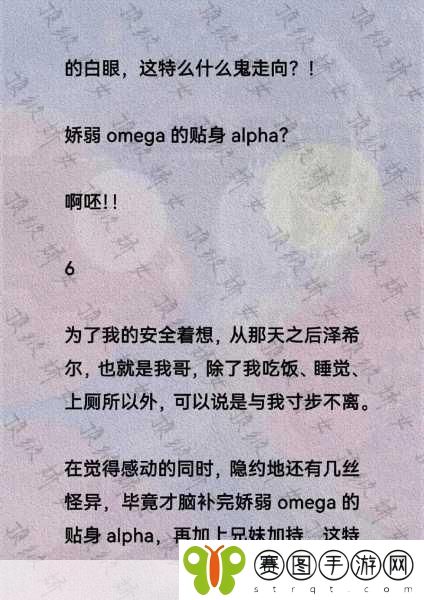 的白眼，这特么什么鬼走向？！
娇弱 omega 的贴身 alpha？
啊呸！！
6
为了我的安全着想，从那天之后泽希
尔，也就是我哥，除了我吃饭、睡觉、
上厕所以外，可以说是与我寸步不离。
在觉得感动的同时，隐约地还有几丝
怪异，毕竟才脑补完娇弱 omega 的
贴身 alpha，再加上兄妹加持，这特
赛图手游网
strqt.com